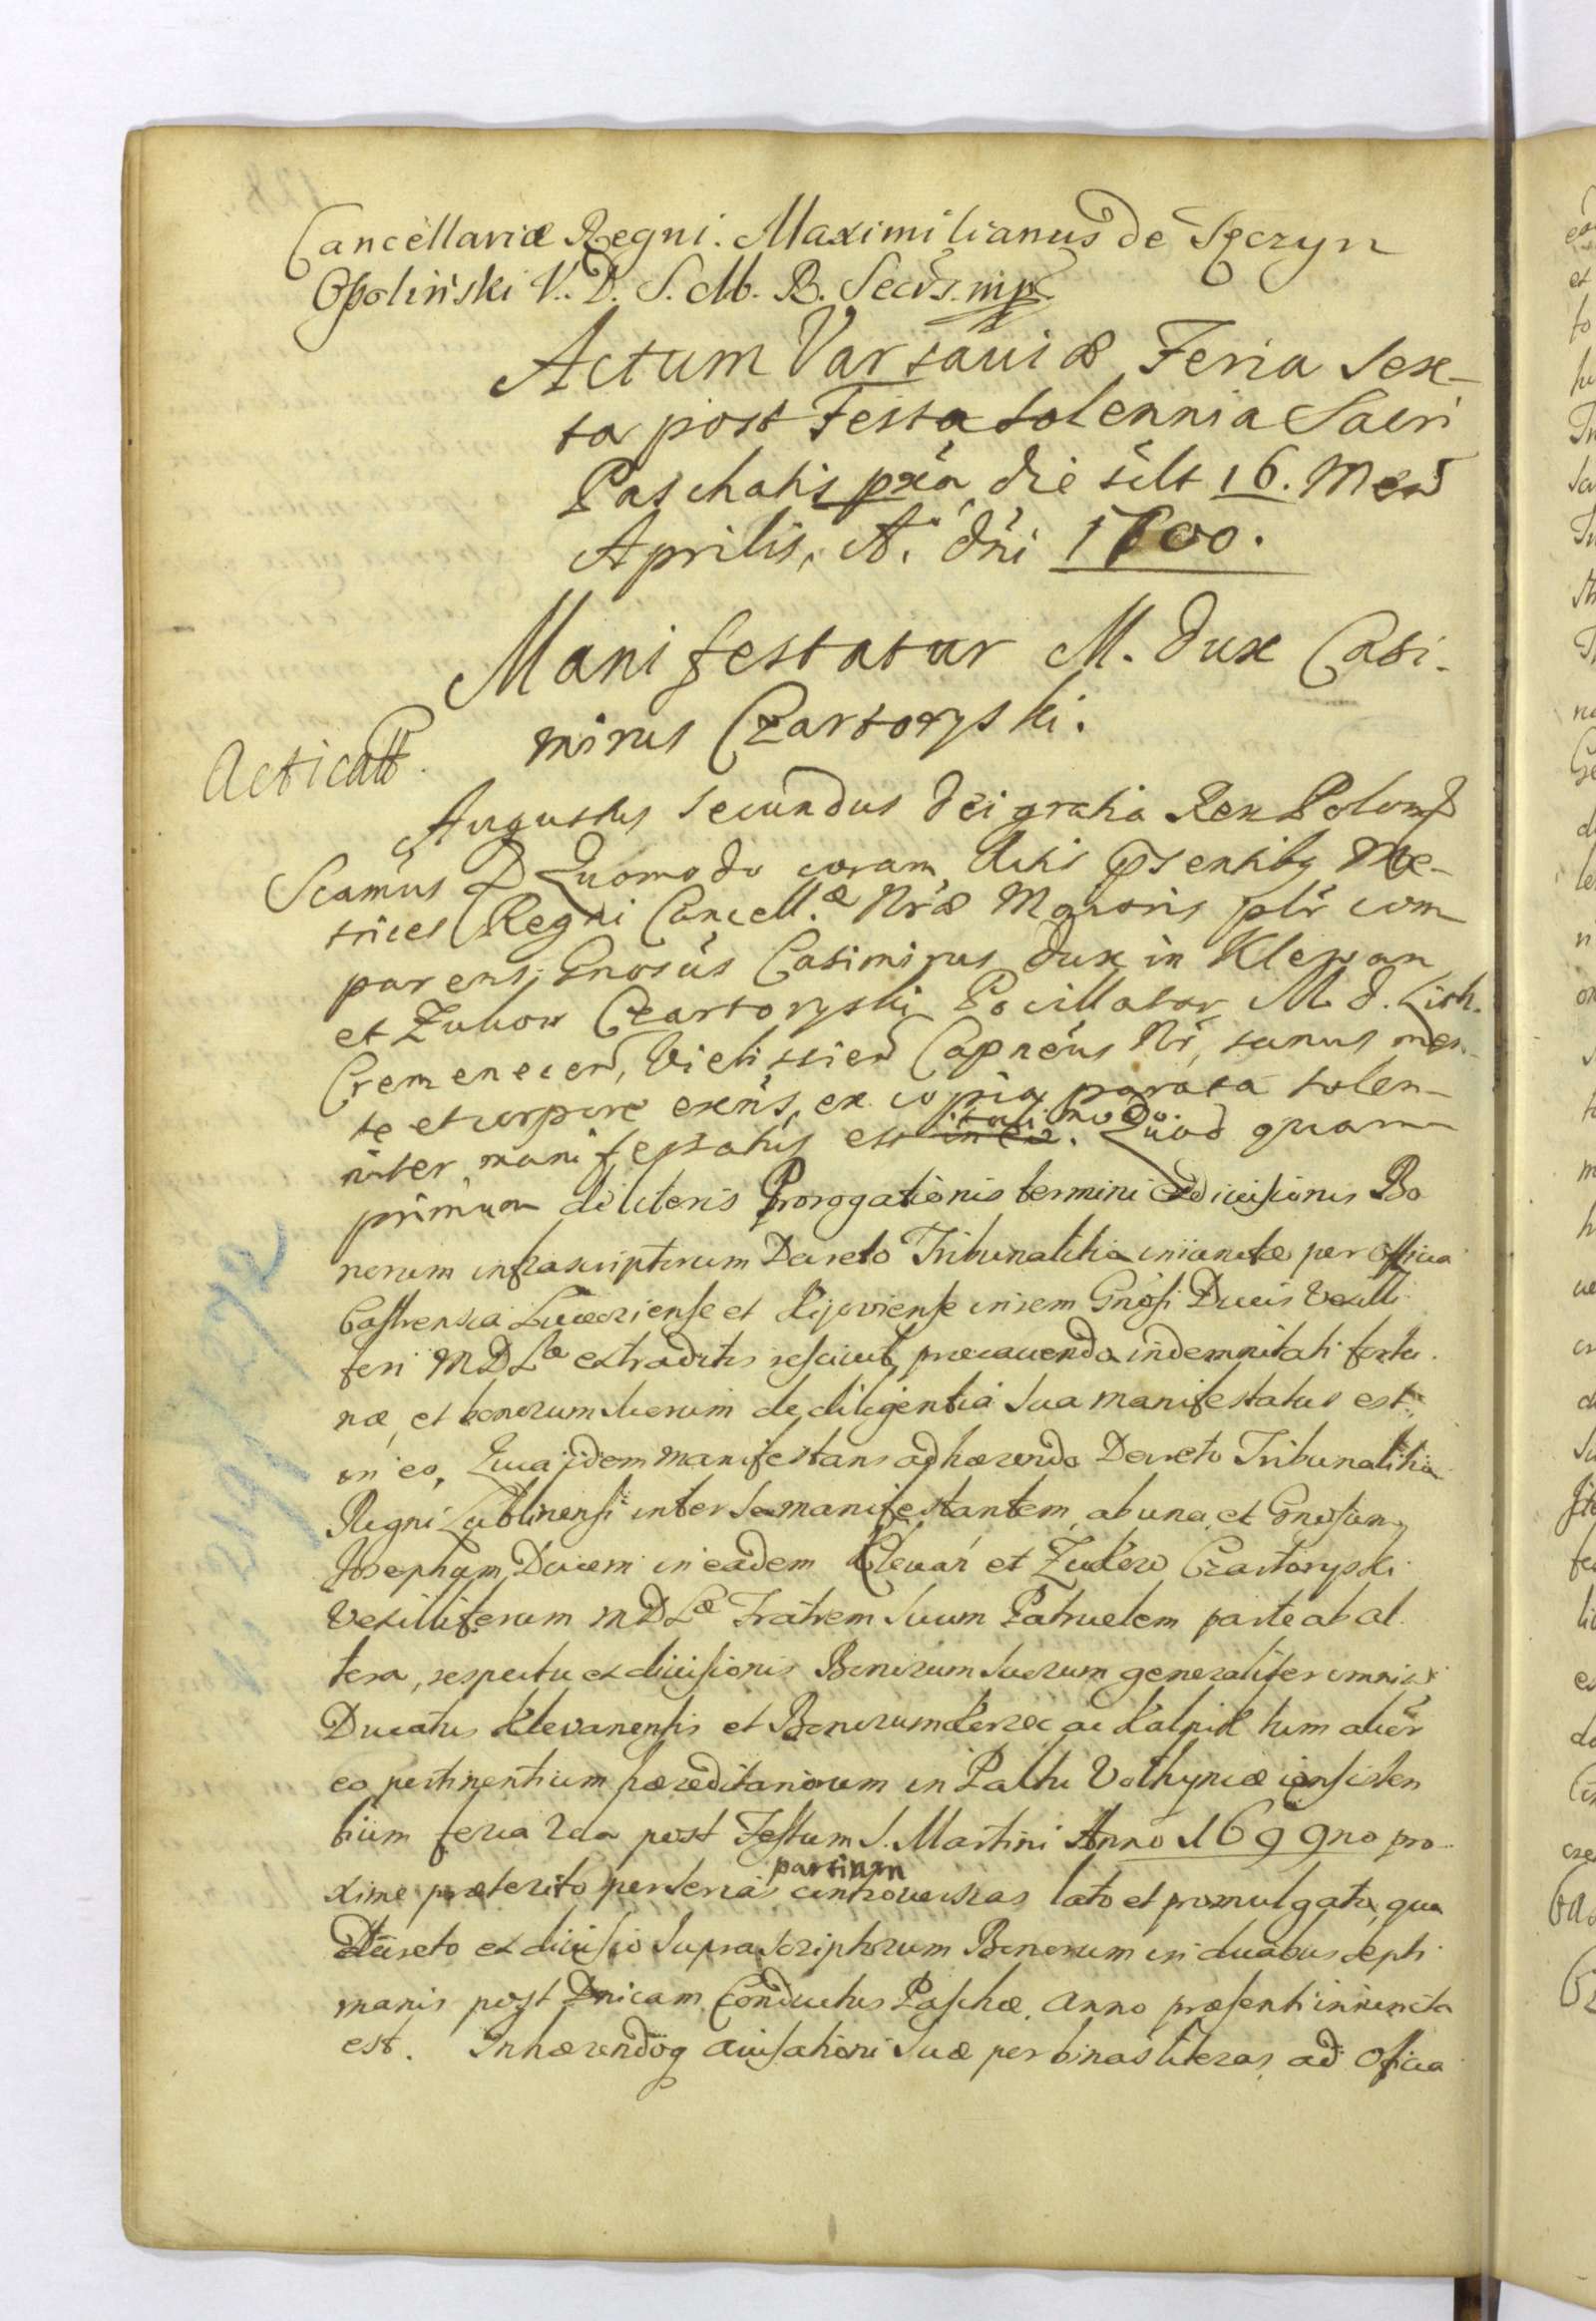 Cancellariæ Regni. Maximilianus de Sęczyn
Opoliński V. D. S. M. B. Secrs. mp
Actum Varsaviæ Feria Sex-
ta post Festa Solennia Sacri
Paschatis pxã die silt 16. Mens
Aprilis, A. dñi 1700.
Manifestatur M. Dux Casi-
mirus Czartoryski.
Acticatt.
Augustus Secundus Dei gratia Rex Polon
Scamus Quomodo coram Actis pśentibꝫ Me-
trices Regni Cancell.æ Nræ Maioris plr com
parens, Gnosus Casimirus Dux in Klewan
et Zukow Czartoryski Pocillator M. D. Lith.
Cremenecen, Vielissien Capneus Nr, sanus men-
te et corpore exñs, ex copia parata solen-
niter manifestatus est in eo. tali modo. Quod quam
primum de literis Prorogationis termini exdivisionis Bo
norum infrascriptorum Decreto Tribunalitio iniunctæ per Officia
Castrensia Luceoriense et Kijoviense in rem Gnosi Ducis Vexilli
feri M D Læ extraditis rescivit, præcavendo indemnitati fortu-
næ, et bonorum suorum de diligentia sua manifestatus est
in eo, Quia idem manifestans adhærendo Decreto Tribunalitio
Regni Lublinensi inter se manifestantem ab una, et Gnosum
Josephum Ducem in eadem Klevań et Zuków Czartoryski
Vexilliferum M D Læ Fratrem suum Patruelem parte ab al
tera, respectu exdivisionis Bonorum suorum generaliter omnium
Ducatus Klevanensis et Bonorum ac Kalnik tum alior
eo pertinentium hæreditariorum in Pallu Volhyniæ consisten
tium feria 2da post Festum S. Martini Anno 1699no pro-
xime præterito per serias partium controversias lato et promulgato, quo
Decreto exdivisio suprascriptorum Bonorum in duabus septi
manis post Dnicam Conductus Paschæ, anno præsenti iniuncta
est. Inhærendoq avisationi suæ per binas literas, ad Officia